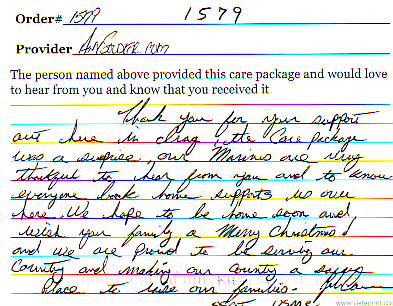 Order# 1579 1579
Provider AnySoldier.com
The person named above provided this care package and would love
to hear from you and know that you received it
Thank you for your support
out here in Iraq, the Care Package
was a surprise, our Marines are very
thankful to hear from you and to know
everyone back home supports us over
here. We hope to be home soon and
wish your family a Merry Christmas!
and we are proud to be serving our
Country and making our country a safer
place to raise our families-
USMC
www.vieteprint.co